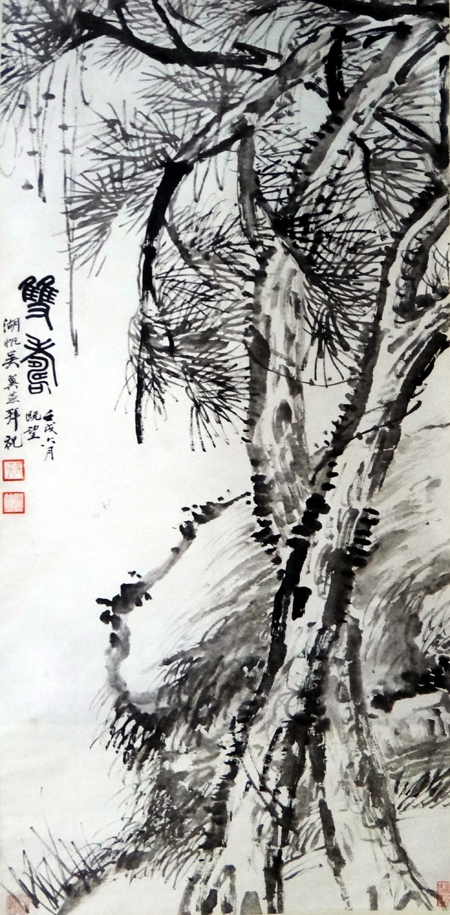 雙壽
壬戌六月
既望
湖帆吳翼燕拜祝